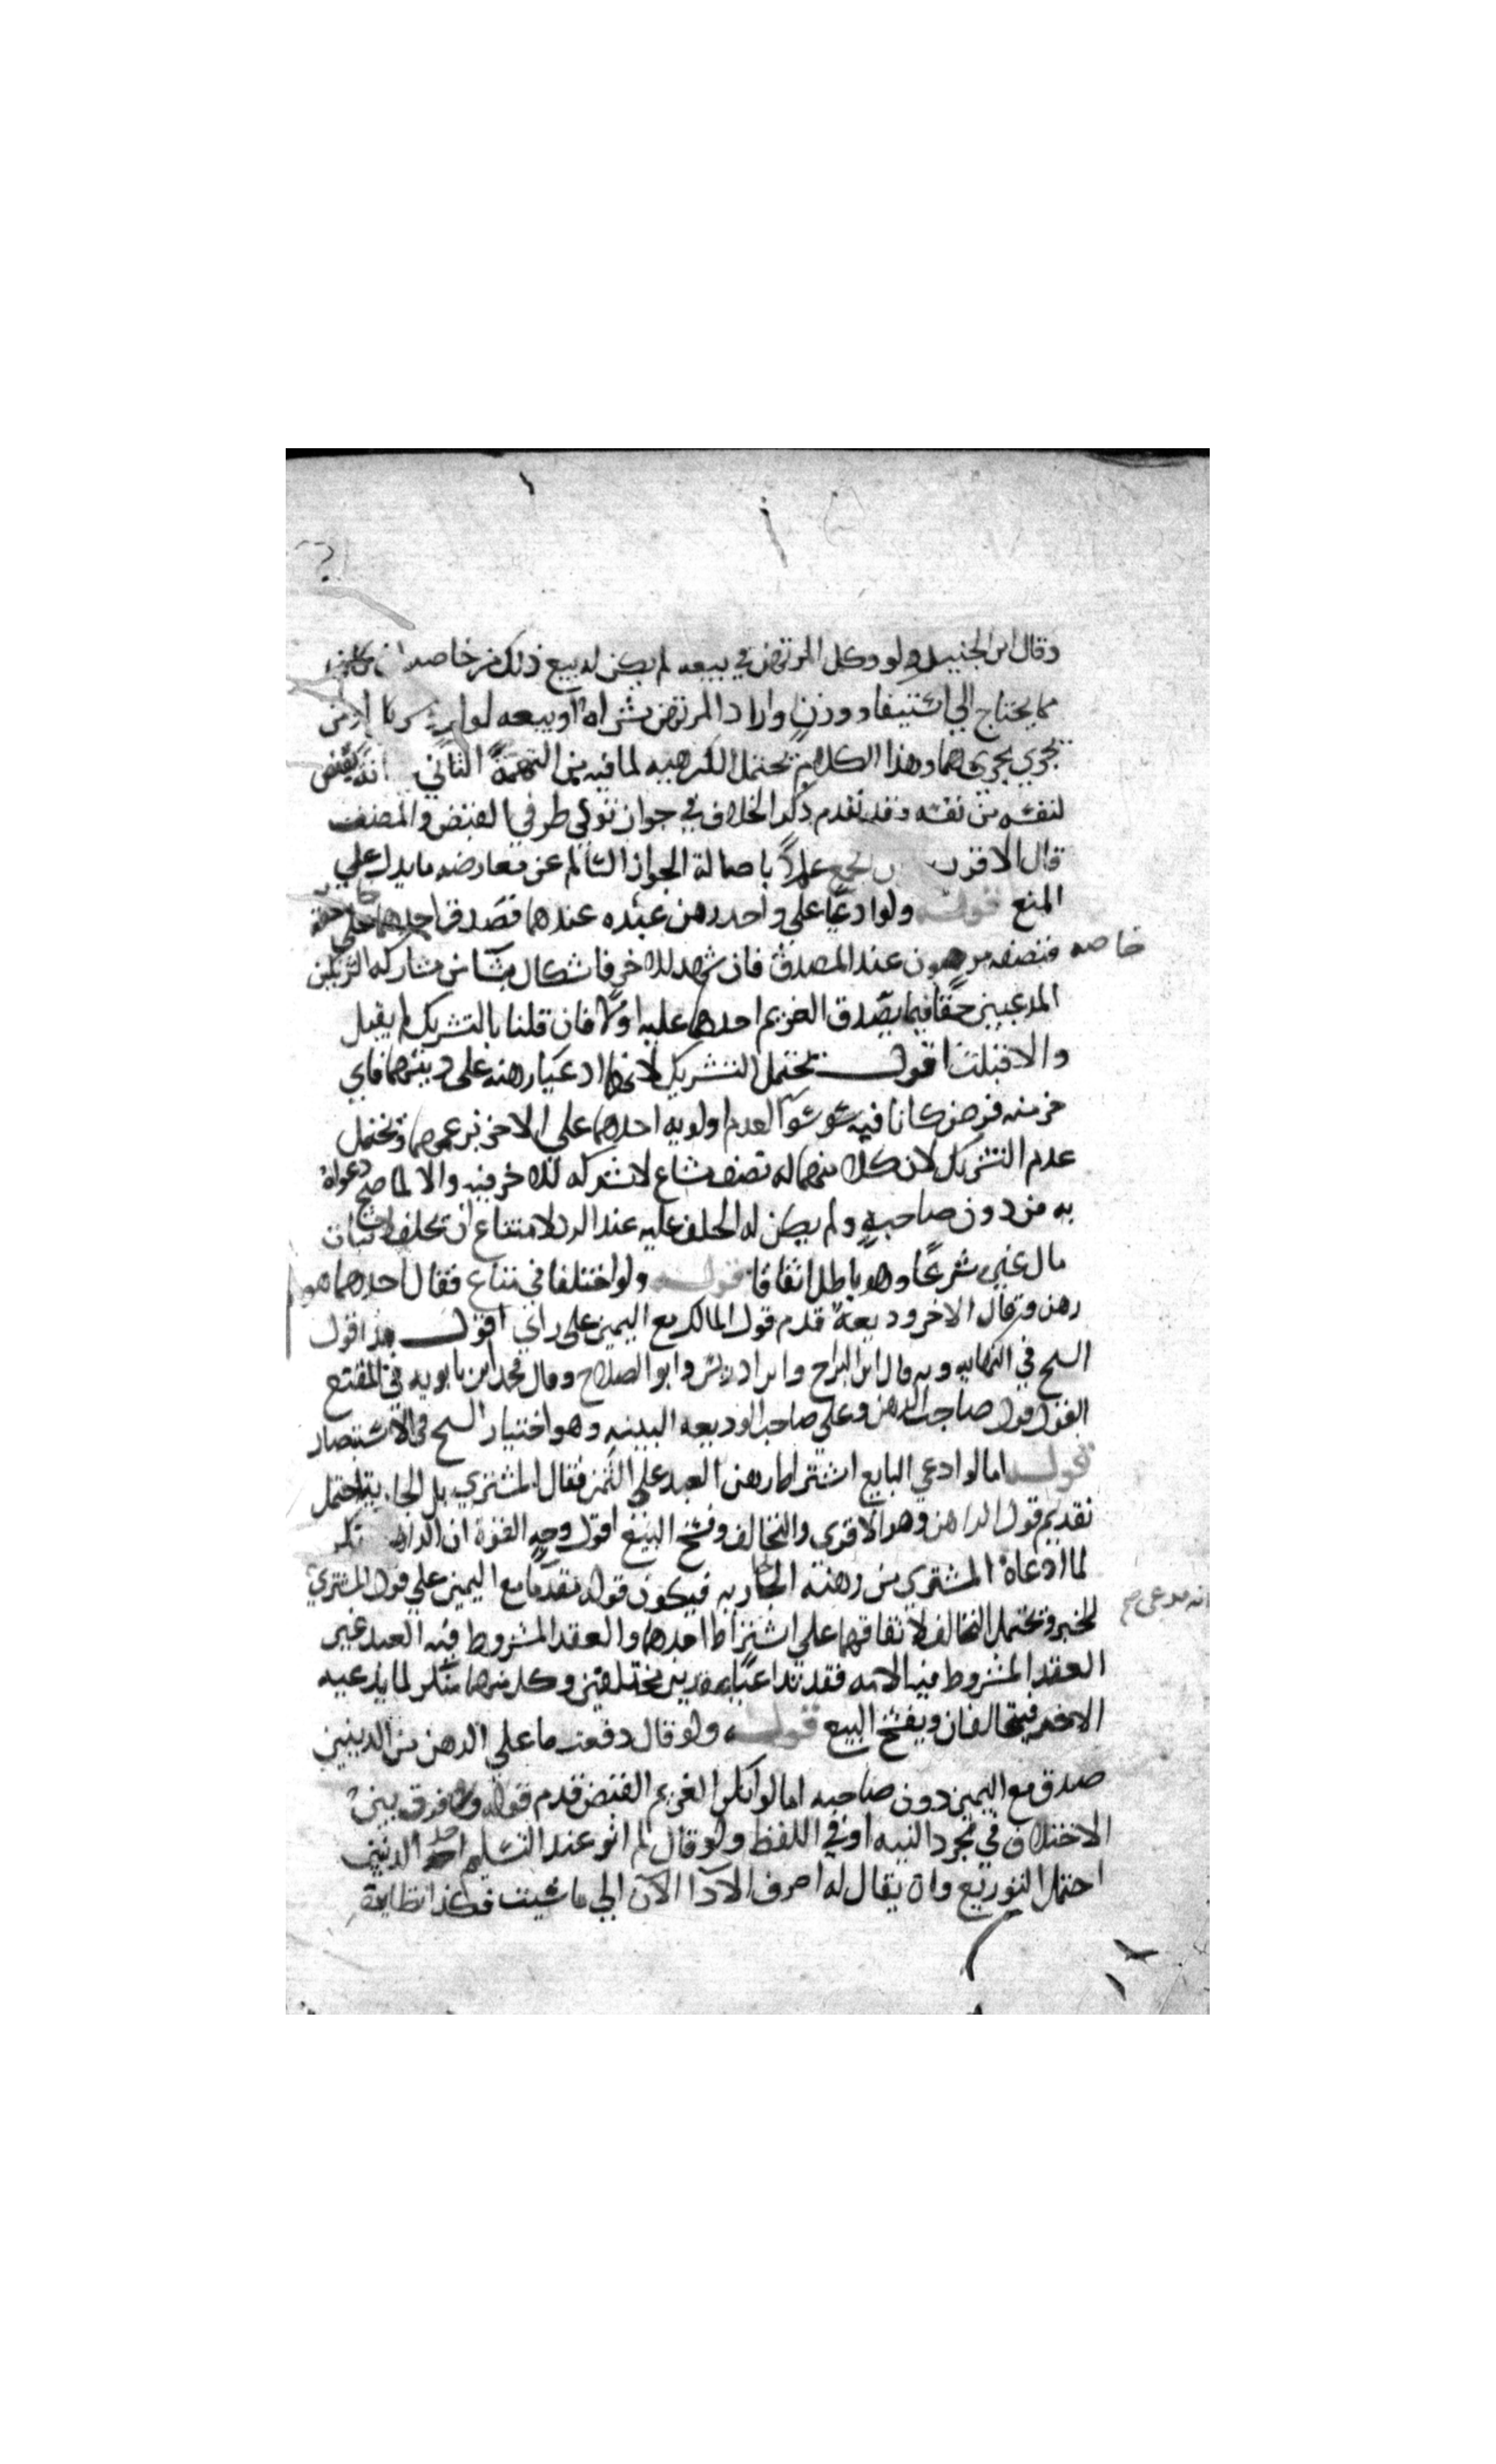 وقال ابن الجنيد ولو وكل المرتهن في بيعه لم يكن له بيع ذلك من خاصه ان كان
مما يحتاج الي استيفاء ووزن واراد المرتهن شراه او بيعه لولده
يجري مجراهما وهذا الكلام يحتمل الكراهيه لما فيه من التهمة الثاني انه يقبض
لنفسه من نفسه وقد تقدم ذكر الخلاف في جواز تولي طرفي القبض والمصنف
قال الاقرب عملاً باصالة الجواز السالم عن معارضه ما يدل علي
المنع قوله ولو ادعيا علي واحد رهن عبده عندهما فصدق احدهما علي حقه
خاصه فنصفه مرهون عند المصدق فان شهد للاخر فاشكال ينشأ من مشاركه الشريكين
المدعيين حقا فيما يصدق الغريم احدهما عليه اولا فان قلنا بالتشريك لم يقبل
والا قبلت اقول يحتمل التشريك لانهما ادعيا رهنه علي دينهما فاي
جزء منه فرض كانا فيه سوا لعدم اولويه احدهما علي الاخر بزعمهما ويحتمل
عدم التشريك لان كلا منهما له نصف مشاع لا شركه للاخر فيه والا لما صح دعواه
به من دون صاحبه ولم يكن له الحلف عليه عند الرد لامتناع ان يحلف لاثبات
مال غيره شرعًا وهو باطل اتفاقا قوله ولو اختلفا في متاع فقال احدهما هو
رهن وقال الاخر وديعة قدم قول المالك مع اليمين علي راي اقول هذا قول
الشيخ في النهايه وبه قال ابن البراج وابن ادريس وابو الصلاح وقال محمد ابن بابويه في المقنع
القول قول صاحب الرهن وعلي صاحب الوديعه البينه وهو اختيار الشيخ في الاستبصار
قوله اما لو ادعي البايع اشتراط رهن العبد علي الثمن فقال المشتري بل الجارية احتمل
تقديم قول الراهن وهو الاقوي والتحالف وفسخ البيع اقول وجه القوة ان الراهن منكر
لما ادعاه المشتري من رهنه الجاريه فيكون قوله مقدما مع اليمين علي قول المشتري
للخبر ويحتمل التحالف لاتفاقهما علي اشتراط احدهما والعقد المشروط فيه العبد غير
العقد المشروط فيه الامه فقد تداعيا عقدين مختلفين وكل منهما منكر لما يدعيه
الاخر فيتحالفان ويفسخ البيع قوله ولو قال دفعت ما علي الرهن من الدينين
صدق مع اليمين دون صاحبه اما لو انكر الغريم القبض قدم قوله ولا فرق بين
الاختلاف في مجرد النيه او في اللفظ ولو قال لم انو عند التسليم احد الدينين
احتمل التوزيع وان يقال له اصرف الادا الان الي ما شيت وكذا نظايره